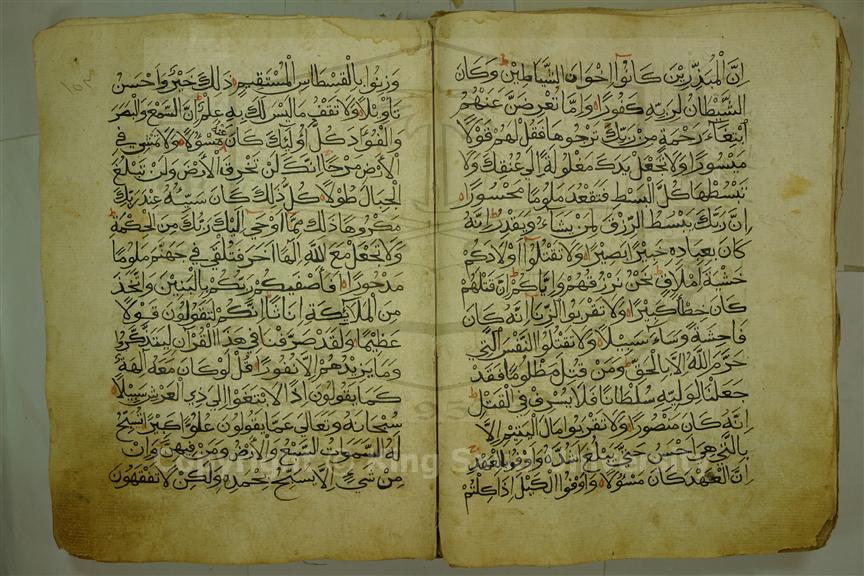 ان المبذرين كانوا اخوان الشياطين وكان
الشيطان لربه كفورا واما تعرضن عنهم
ابتغاء رحمة من ربك ترجوها فقل لهم قولا
ميسورا ولا تجعل يدك مغلولة الى عنقك ولا
تبسطها كل البسط فتقعد ملوما محسورا
ان ربك يبسط الرزق لمن يشاء ويقدر انه
كان بعباده خبيرا بصيرا ولا تقتلوا اولادكم
خشية املاق نحن نرزقهم واياكم ان قتلهم
كان خطأ كبيرا ولا تقربوا الزنا انه كان
فاحشة وساء سبيلا ولا تقتلوا النفس التي
حرم الله الا بالحق ومن قتل مظلوما فقد
جعلنا لوليه سلطانا فلا يسرف في القتل
انه كان منصورا ولا تقربوا مال اليتيم الا
بالتي هي احسن حتى يبلغ اشده واوفوا بالعهد
ان العهد كان مسؤلا واوفوا الكيل اذا كلتم
وزنوا بالقسطاس المستقيم ذلك خير واحسن
تاويلا ولا تقف ما ليس لك به علم ان السمع والبصر
والفؤاد كل اولئك كان عنه مسؤلا ولا تمش في
الارض مرحا انك لن تخرق الارض ولن تبلغ
الجبال طولا كل ذلك كان سيئه عند ربك
مكروها ذلك مما اوحى اليك ربك من الحكمة
ولا تجعل مع الله الها اخر فتلقى في جهنم ملوما
مدحورا افاصفيكم ربكم بالبنين واتخذ
من الملايكة اناثا انكم لتقولون قولا
عظيما ولقد صرفنا في هذا القران ليذكروا
وما يزيدهم الا نفورا قل لو كان معه الهة
كما يقولون اذا لابتغوا الى ذي العرش سبيلا
سبحانه وتعالى عما يقولون علوا كبيرا تسبح
له السموات السبع والارض ومن فيهن وان
من شيء الا يسبح بحمده ولكن لا تفقهون